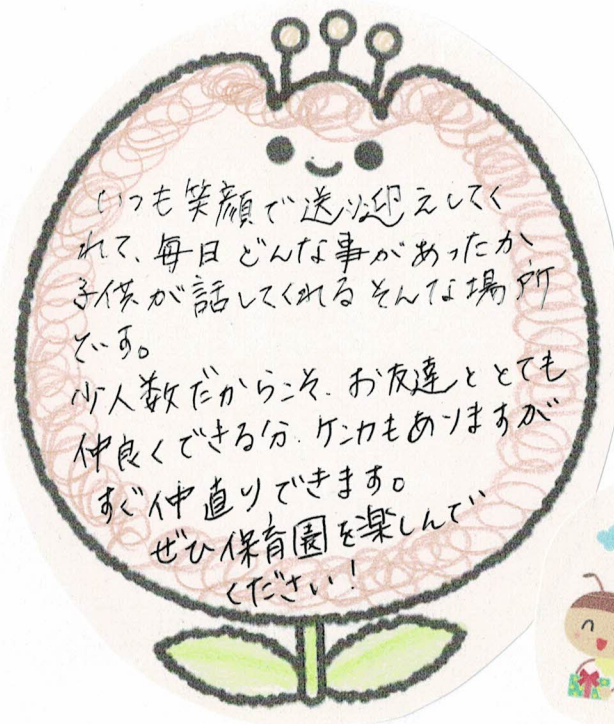 いつも笑顔で送り迎えしてく
れて、毎日どんな事があったか
子供が話してくれるそんな場所
です。
少人数だからこそ、お友達ととても
仲良くできる分、ケンカもありますが
すぐ仲直りできます。
ぜひ保育園を楽しんで
ください!